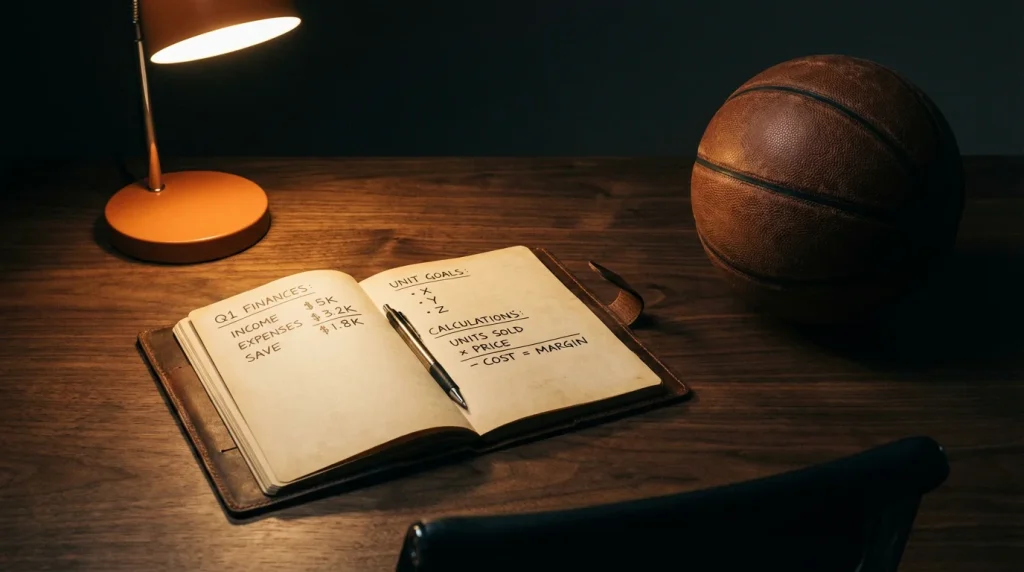 Q1 FINANCES:
INCOME $5K
EXPENSES $3.2K
SAVE $1.8K
UNIT GOALS:
· X
· Y
· Z
CALCULATIONS:
UNITS SOLD
× PRICE
– COST = MARGIN